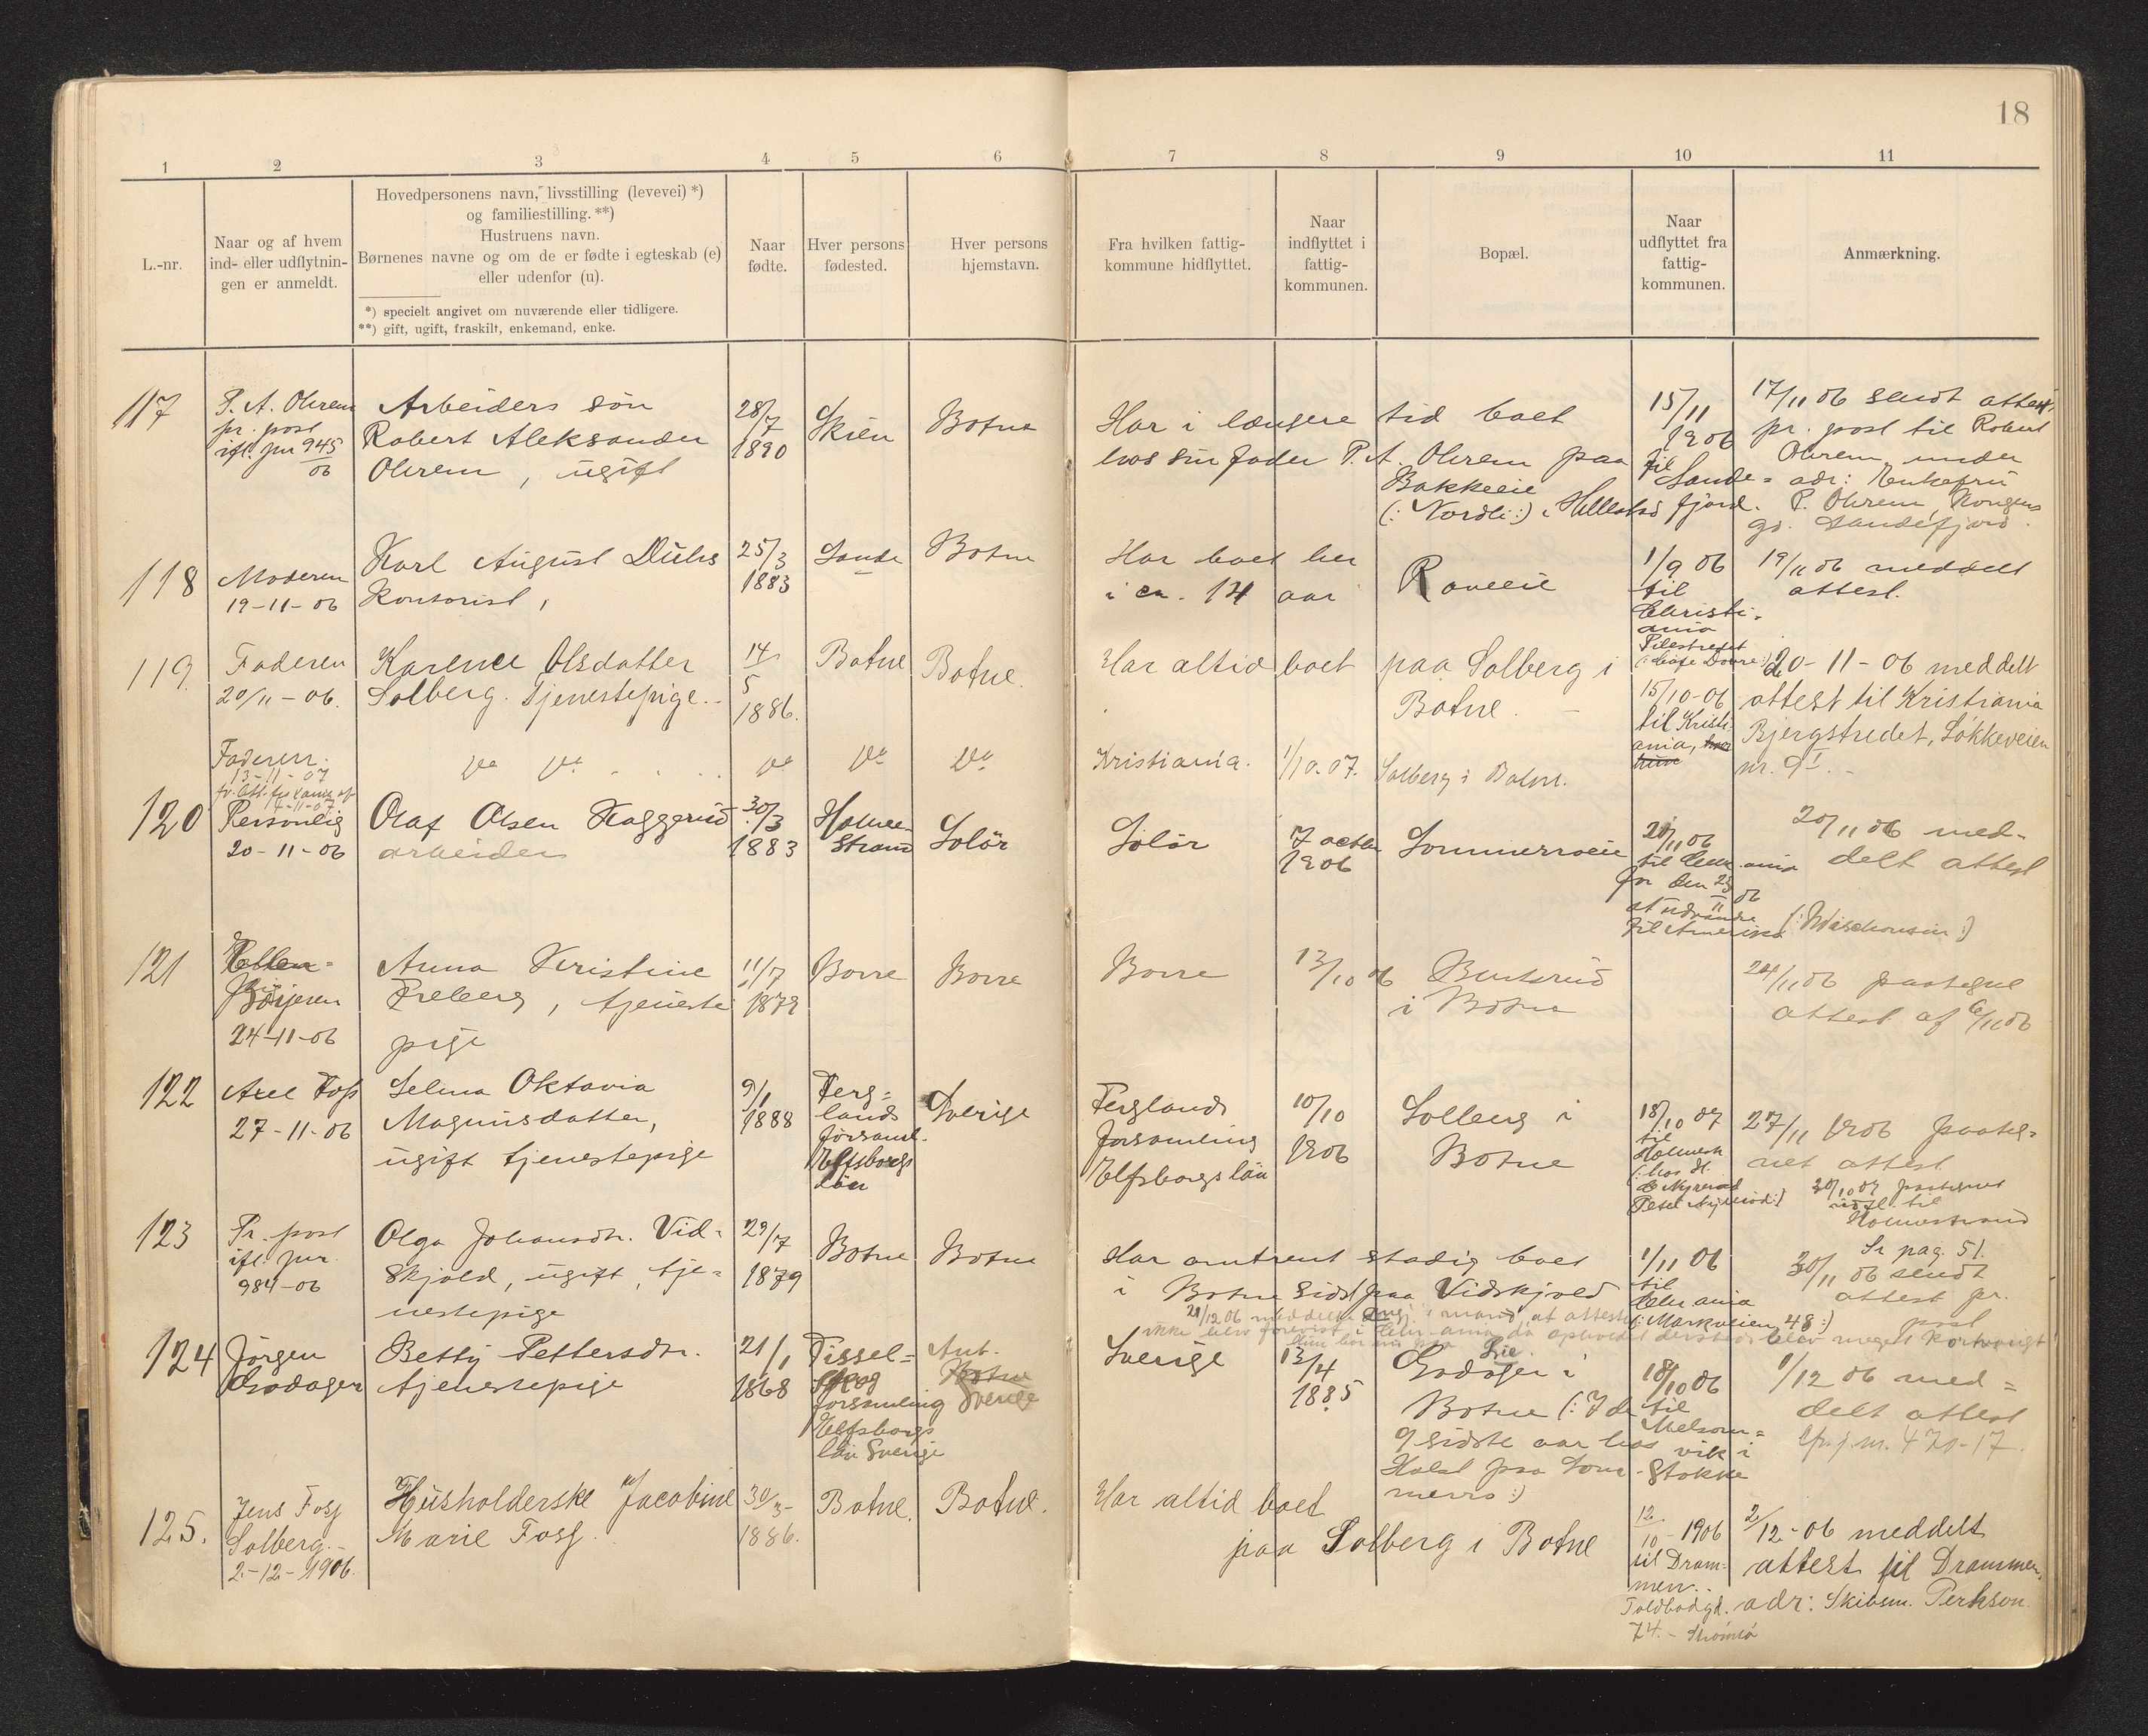 18
1 2 3 4 5 6 7 8 9 10 11
L.-nr.
Naar og af hvem
ind- eller udflytnin-
gen er anmeldt.
Hovedpersonens navn, livsstilling (levevei) *)
og familiestilling. **)
Hustruens navn.
Børnenes navne og om de er fødte i egteskab (e)
eller udenfor (u).
*) specielt angivet om nuværende eller tidligere.
**) gift, ugift, fraskilt, enkemand, enke.
Naar
fødte.
Hver persons
fødested.
Hver persons
hjemstavn.
Fra hvilken fattig-
kommune hidflyttet.
Naar
indflyttet i
fattig-
kommunen.
Bopæl.
Naar
udflyttet fra
fattig-
kommunen.
Anmærkning.
117
P. A. Ohrem
pr. post
ifl. jnr 945
06
Arbeiders søn
Robert Aleksander
Ohrem, ugift
28/7
1890
Skien
Botne
Har i længere tid boet
hos sin fader P. A. Ohrem paa
Bakkeeie
(: Nordli :) i Hillestad
15/11
1906
til
Sande=
fjord.
17/11 06 sendt attest
pr. post til Robert
Ohrem under
adr: Enkefru
P. Ohrem, Kongens
gd. Sandefjord.
118
Moderen
19-11-06
Karl August Dühs
Kontorist,
25/3
1883
Sande
Botne
Har boet her
i ca. 14 aar
Roveeie
1/9 06
til
Christi-
ania
Pilestredet
19/11 06 meddelt
attest.
119.
Faderen
20/11-06.
Karence Olsdatter
Solberg. Tjenestepige.
14/5
1886.
Botne
Botne.
Har altid boet paa Solberg i
Botne.
15/10-06
til Kristi-
ania,
20-11-06 meddelt
attest til Kristiania
Bjergstredet, Løkkeveien
nr. 9 I.
Faderen.
13-11-07
Kristiania.
1/10.07.
Solberg i Botne.
120
Personlig
20-11-06
Olaf Olsen Haggerud
arbeider
30/3
1883
Holme-
strand
Solør
Solør
7 octbr
1906
Sommerroeie
21/11 06
til Chr.ania
for den 23/11 06
at udvandre
til Amerika (: Wisconsin :)
20/11 06 med-
delt attest
121
24-11-06
Anna Kristine
Freberg, tjeneste
pige
11/7
1879
Borre
Borre
Borre
13/10 06
Bentsrud
i Botne
24/11 06 paategnet
attest af 6/11 06
122
Axel Foss
27-11-06
Selma Oktavia
Magnusdatter,
ugift tjenestepige
9/1
1888
Ferg=
lands
forsaml.
Elfsborgs
län
Sverige
Ferglands
forsamling
Elfsborgs län
10/10
1906
Solberg i
Botne
18/10 07
til
Holmestr.
27/11 1906 paateg-
net attest
30/10 07 paategnet
udfl. til
Holmestrand
123
Pr. post
ifl. jnr.
984-06
Olga Johansdtr. Vid-
skjold, ugift, tje-
nestepige
29/7
1879
Botne
Botne
Har omtrent stadig boet
i Botne sidst paa Vidskjold
1/11 06
til
Chr.ania
(: Markveien 48 :)
Se pag. 51.
30/11 06 sendt
attest pr.
post
124
Jørgen
Grødager
Betty Pettersdtr.
tjenestepige
21/1
1868
Tissel=
skog
forsamling
Elfsborgs
län Sverige
Ant.
Botne
Sverige
Sverige
13/4
1885
Grødager i
Botne (: 7 de
9 sidste aar hos
Holst paa Som-
merro :)
18/10 06
til
Melsom=
vik i
Stokke
1/12 06 med=
delt attest
Cfr. j. nr. 470-17.
125.
Jens Foss
Solberg.-
2-12-1906.
Husholderske Jacobine
Marie Foss.
30/3-
1886.
Botne.
Botne.
Har altid boet
paa Solberg i Botne
12/10-1906
til Dram-
men.
Toldbodgd.
74. - Strømsø
2/12-06 meddelt
attest til Drammen,
adr: Skibsm. Perhson.